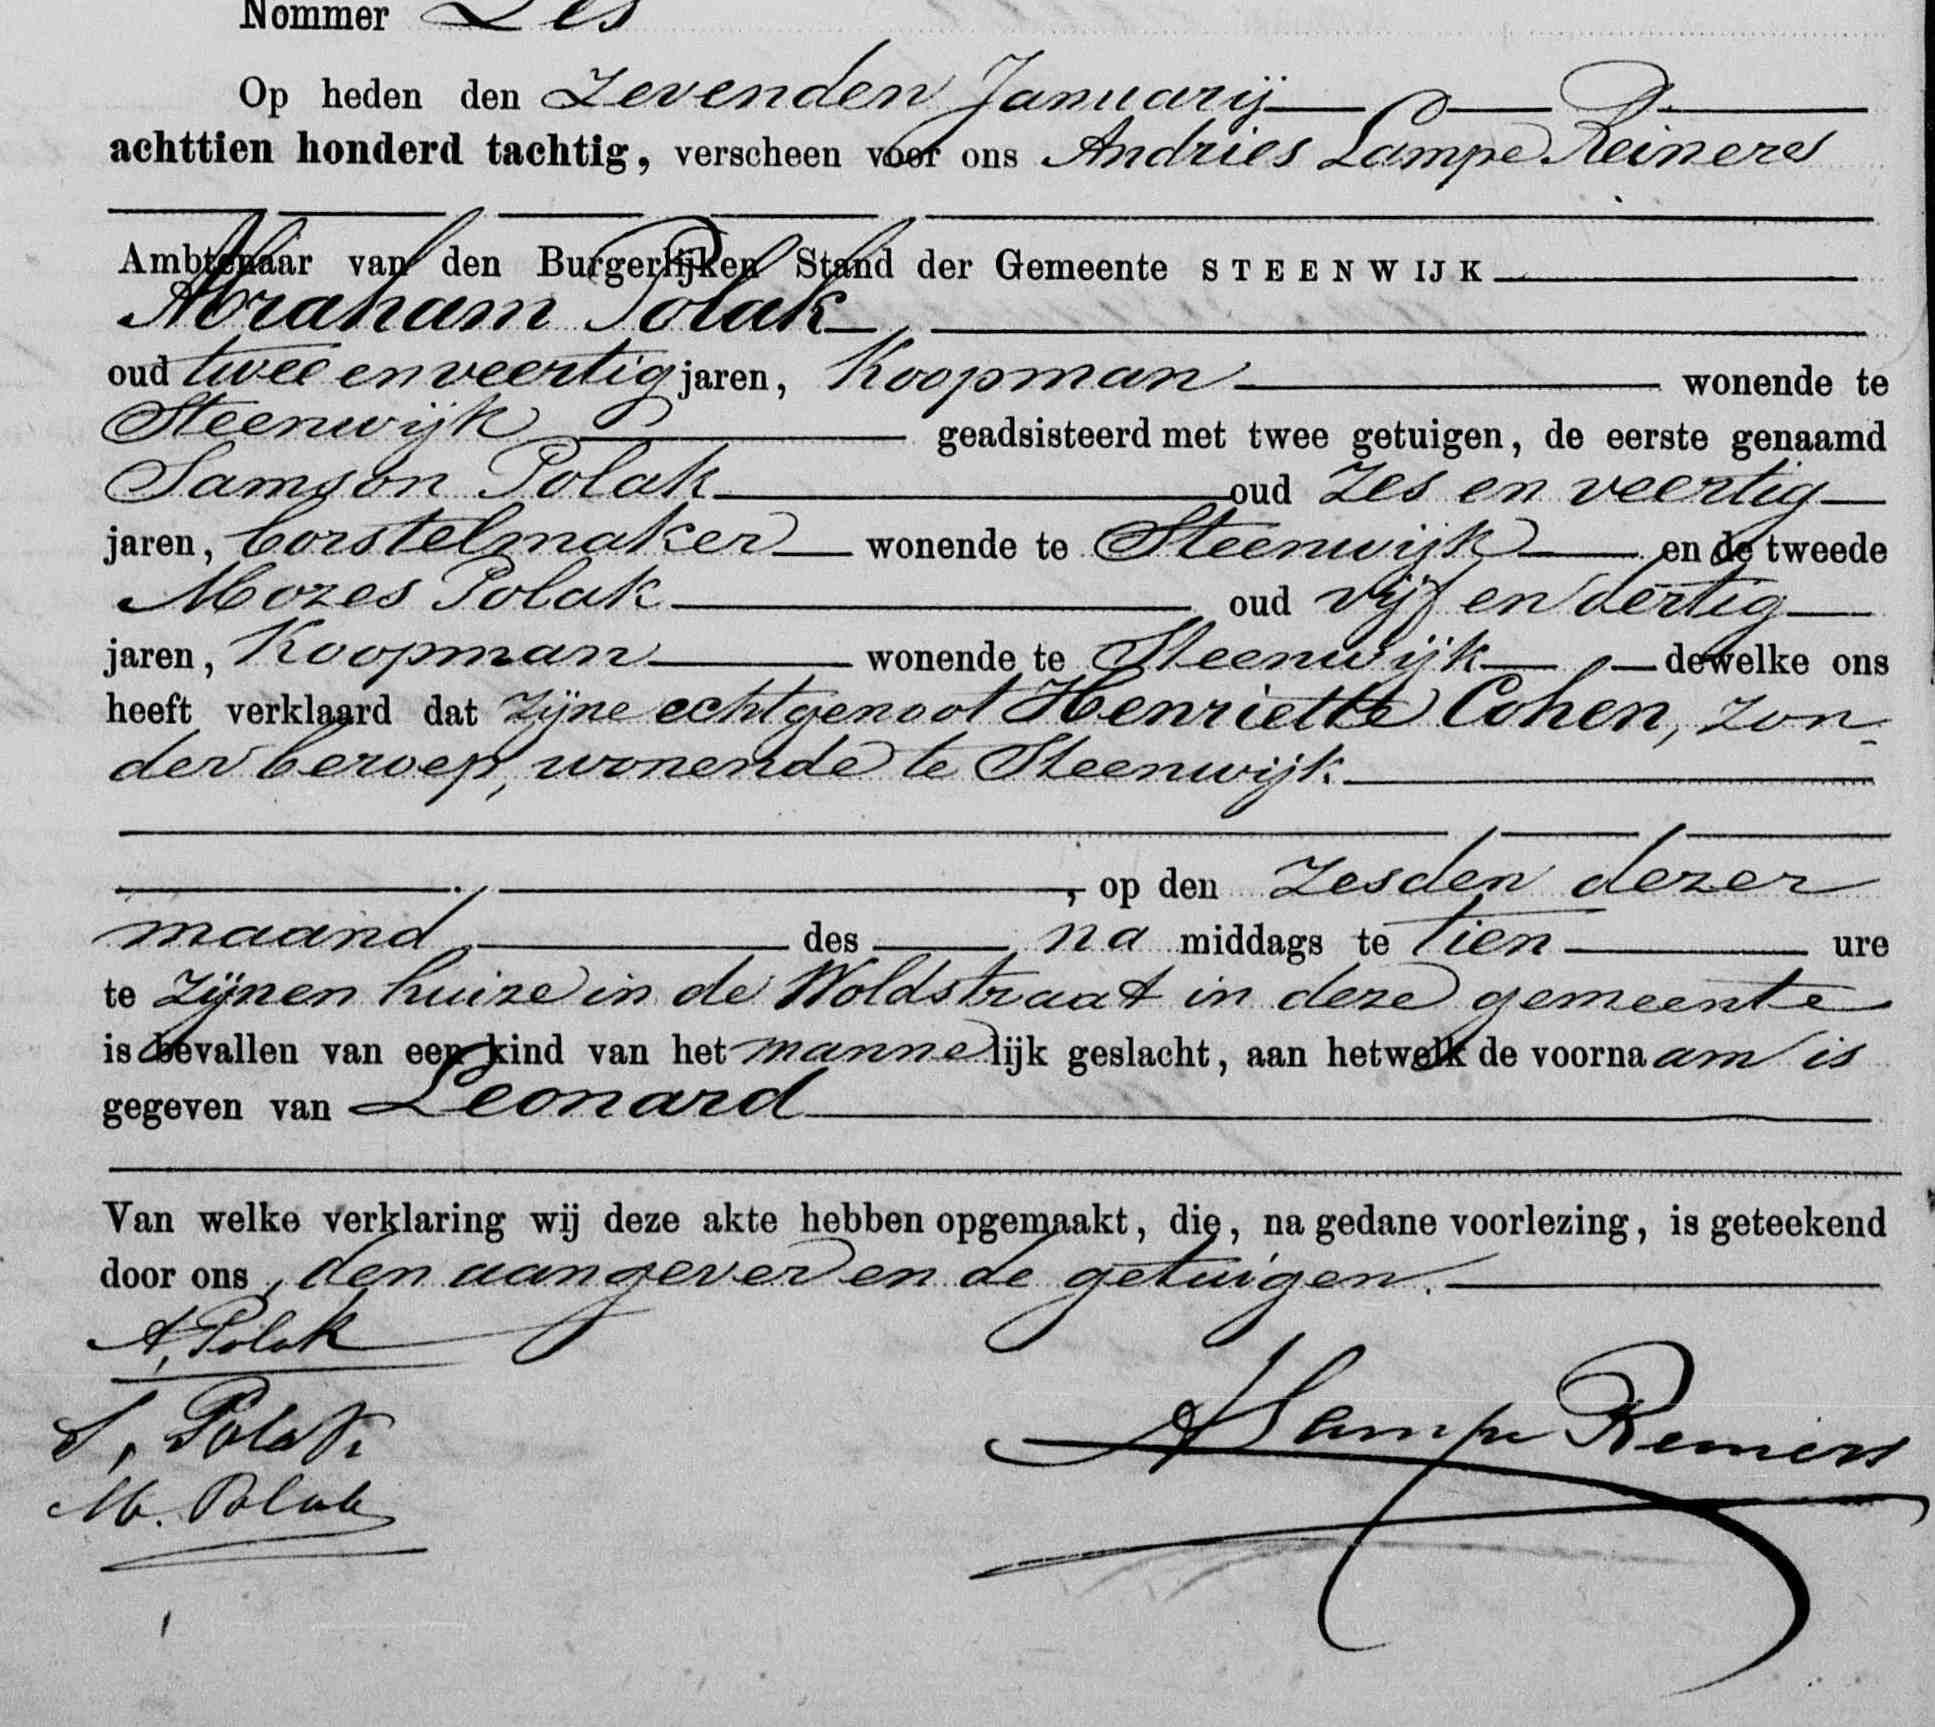 Nommer Zes
Op heden den Zevenden Januarij
achttien honderd tachtig, verscheen voor ons Andries Lampe Reiners
Ambtenaar van den Burgerlijken Stand der Gemeente STEENWIJK
Abraham Polak,
oud twee en veertig jaren, Koopman wonende te
Steenwijk geadsisteerd met twee getuigen, de eerste genaamd
Samson Polak oud zes en veertig
jaren, borstelmaker wonende te Steenwijk en de tweede
Mozes Polak oud vijf en dertig
jaren, Koopman wonende te Steenwijk, dewelke ons
heeft verklaard dat zijne echtgenoot Henriette Cohen, zon-
der beroep, wonende te Steenwijk
, op den Zesden dezer
maand, des na middags te tien ure
te zijnen huize in de Woldstraat in deze gemeente
is bevallen van een kind van het mannelijk geslacht, aan hetwelk de voornaam is
gegeven van Leonard
Van welke verklaring wij deze akte hebben opgemaakt, die, na gedane voorlezing, is geteekend
door ons, den aangever en de getuigen.
A, Polak
S, Polak
M. Polak
A Lampe Reiners